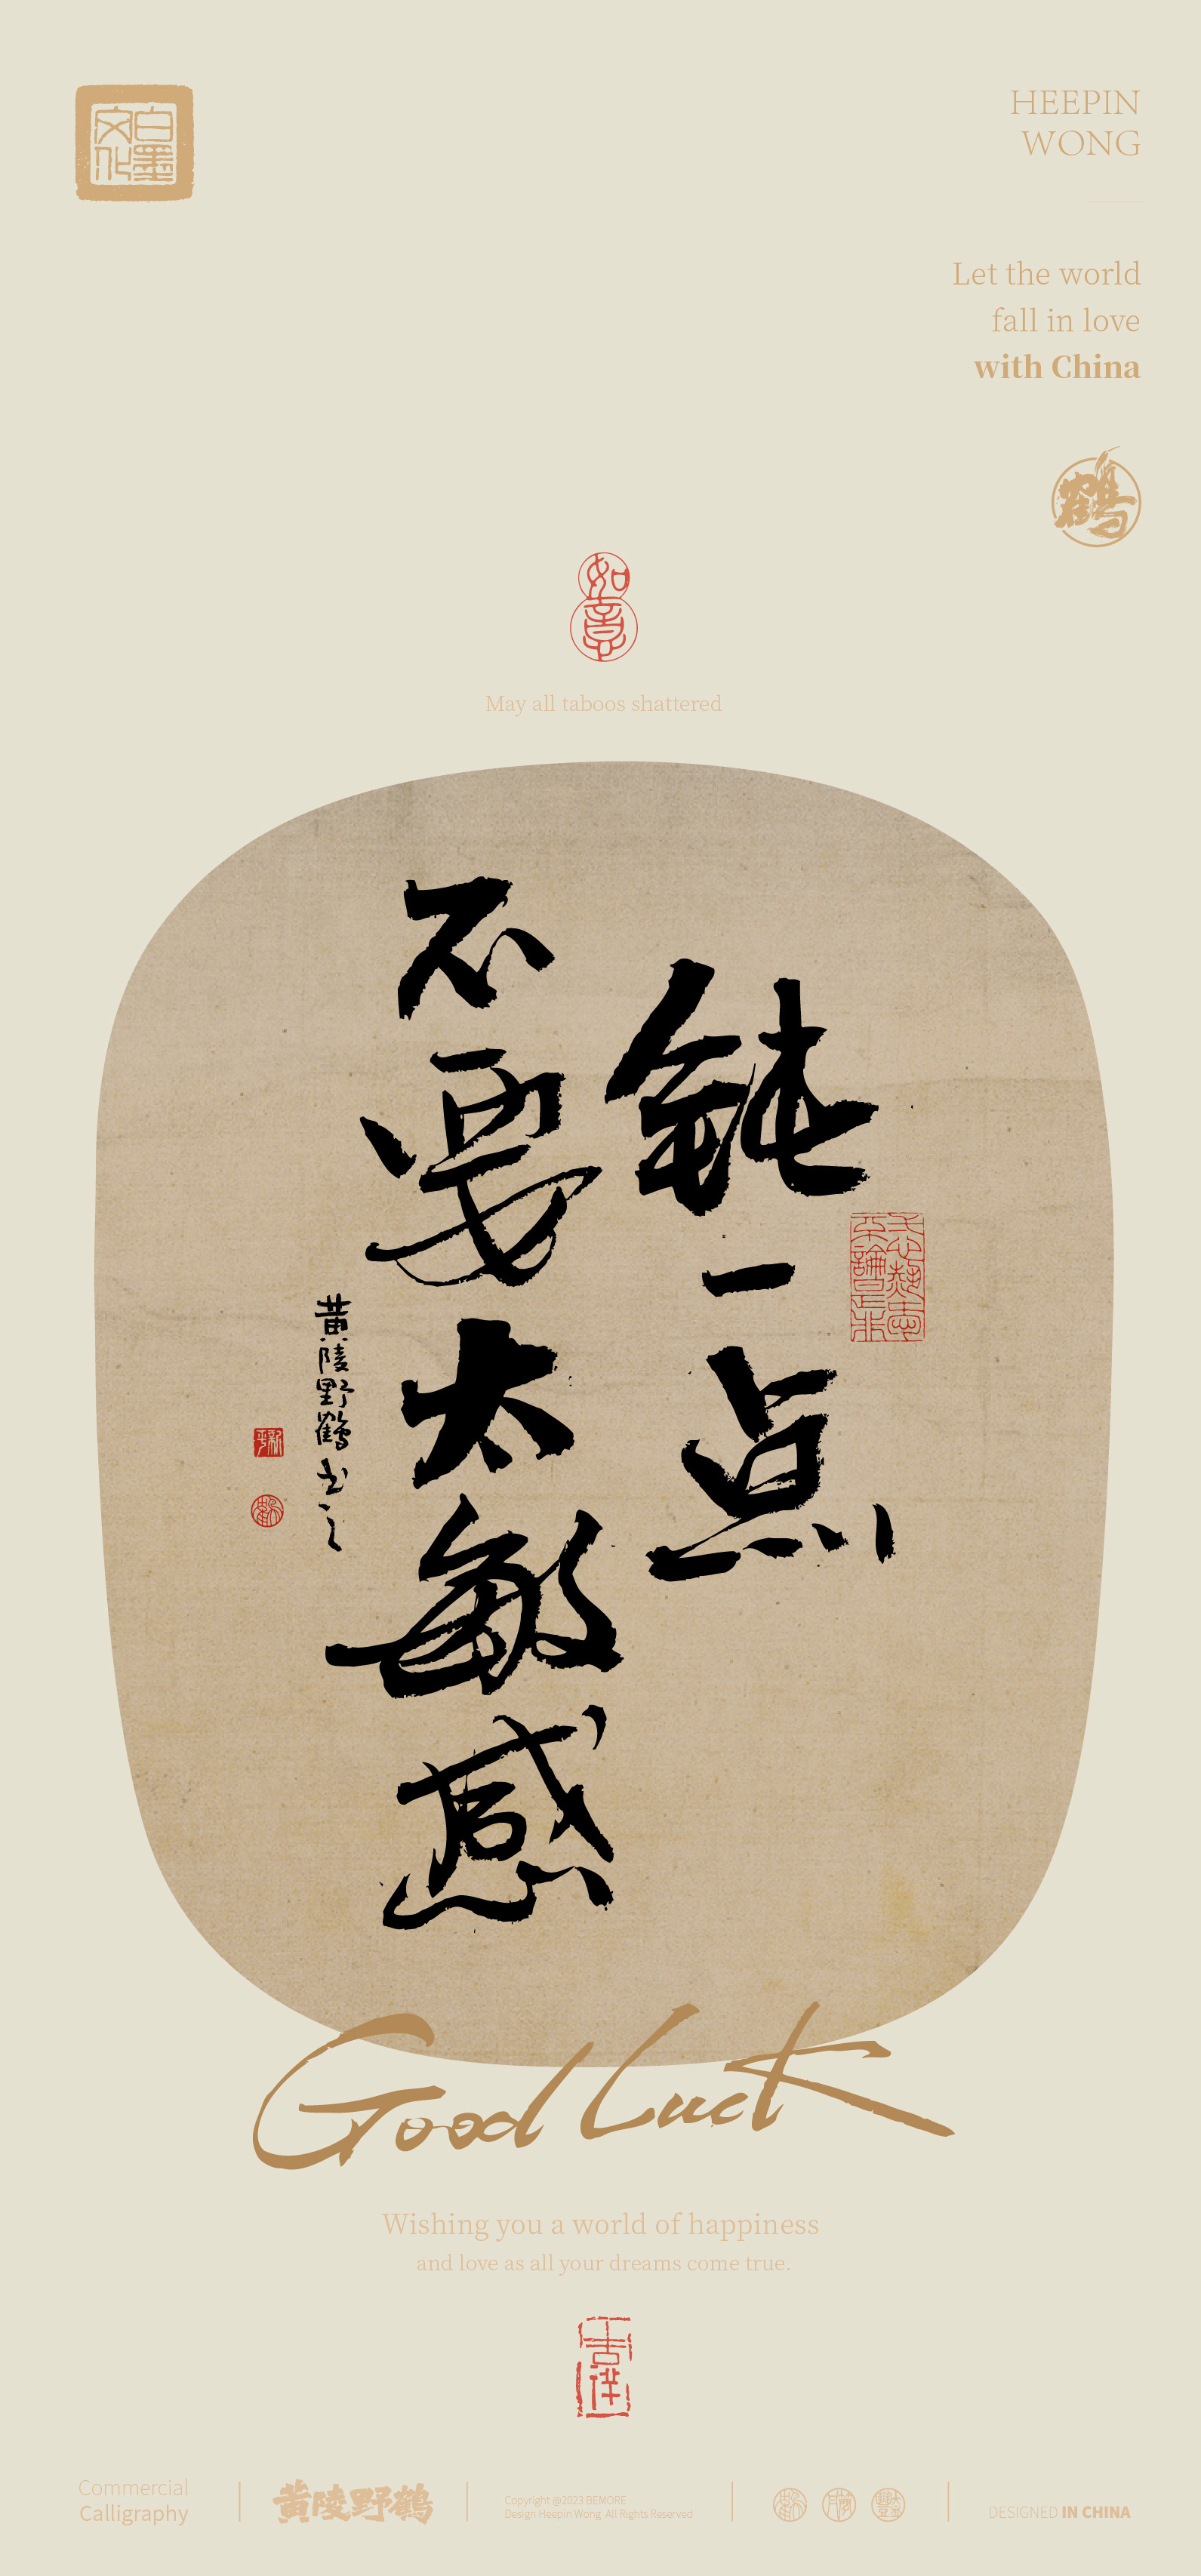 白墨
文化
HEEPIN
WONG
Let the world
fall in love
with China
鶴
如意
May all taboos shattered
钝一点
不要太敏感
黄陵野鶴书之
Good Luck
Wishing you a world of happiness
and love as all your dreams come true.
吉祥
Commercial
Calligraphy
黄陵野鶴
Copyright @2023 BEMORE
Design Heepin Wong All Rights Reserved
DESIGNED IN CHINA